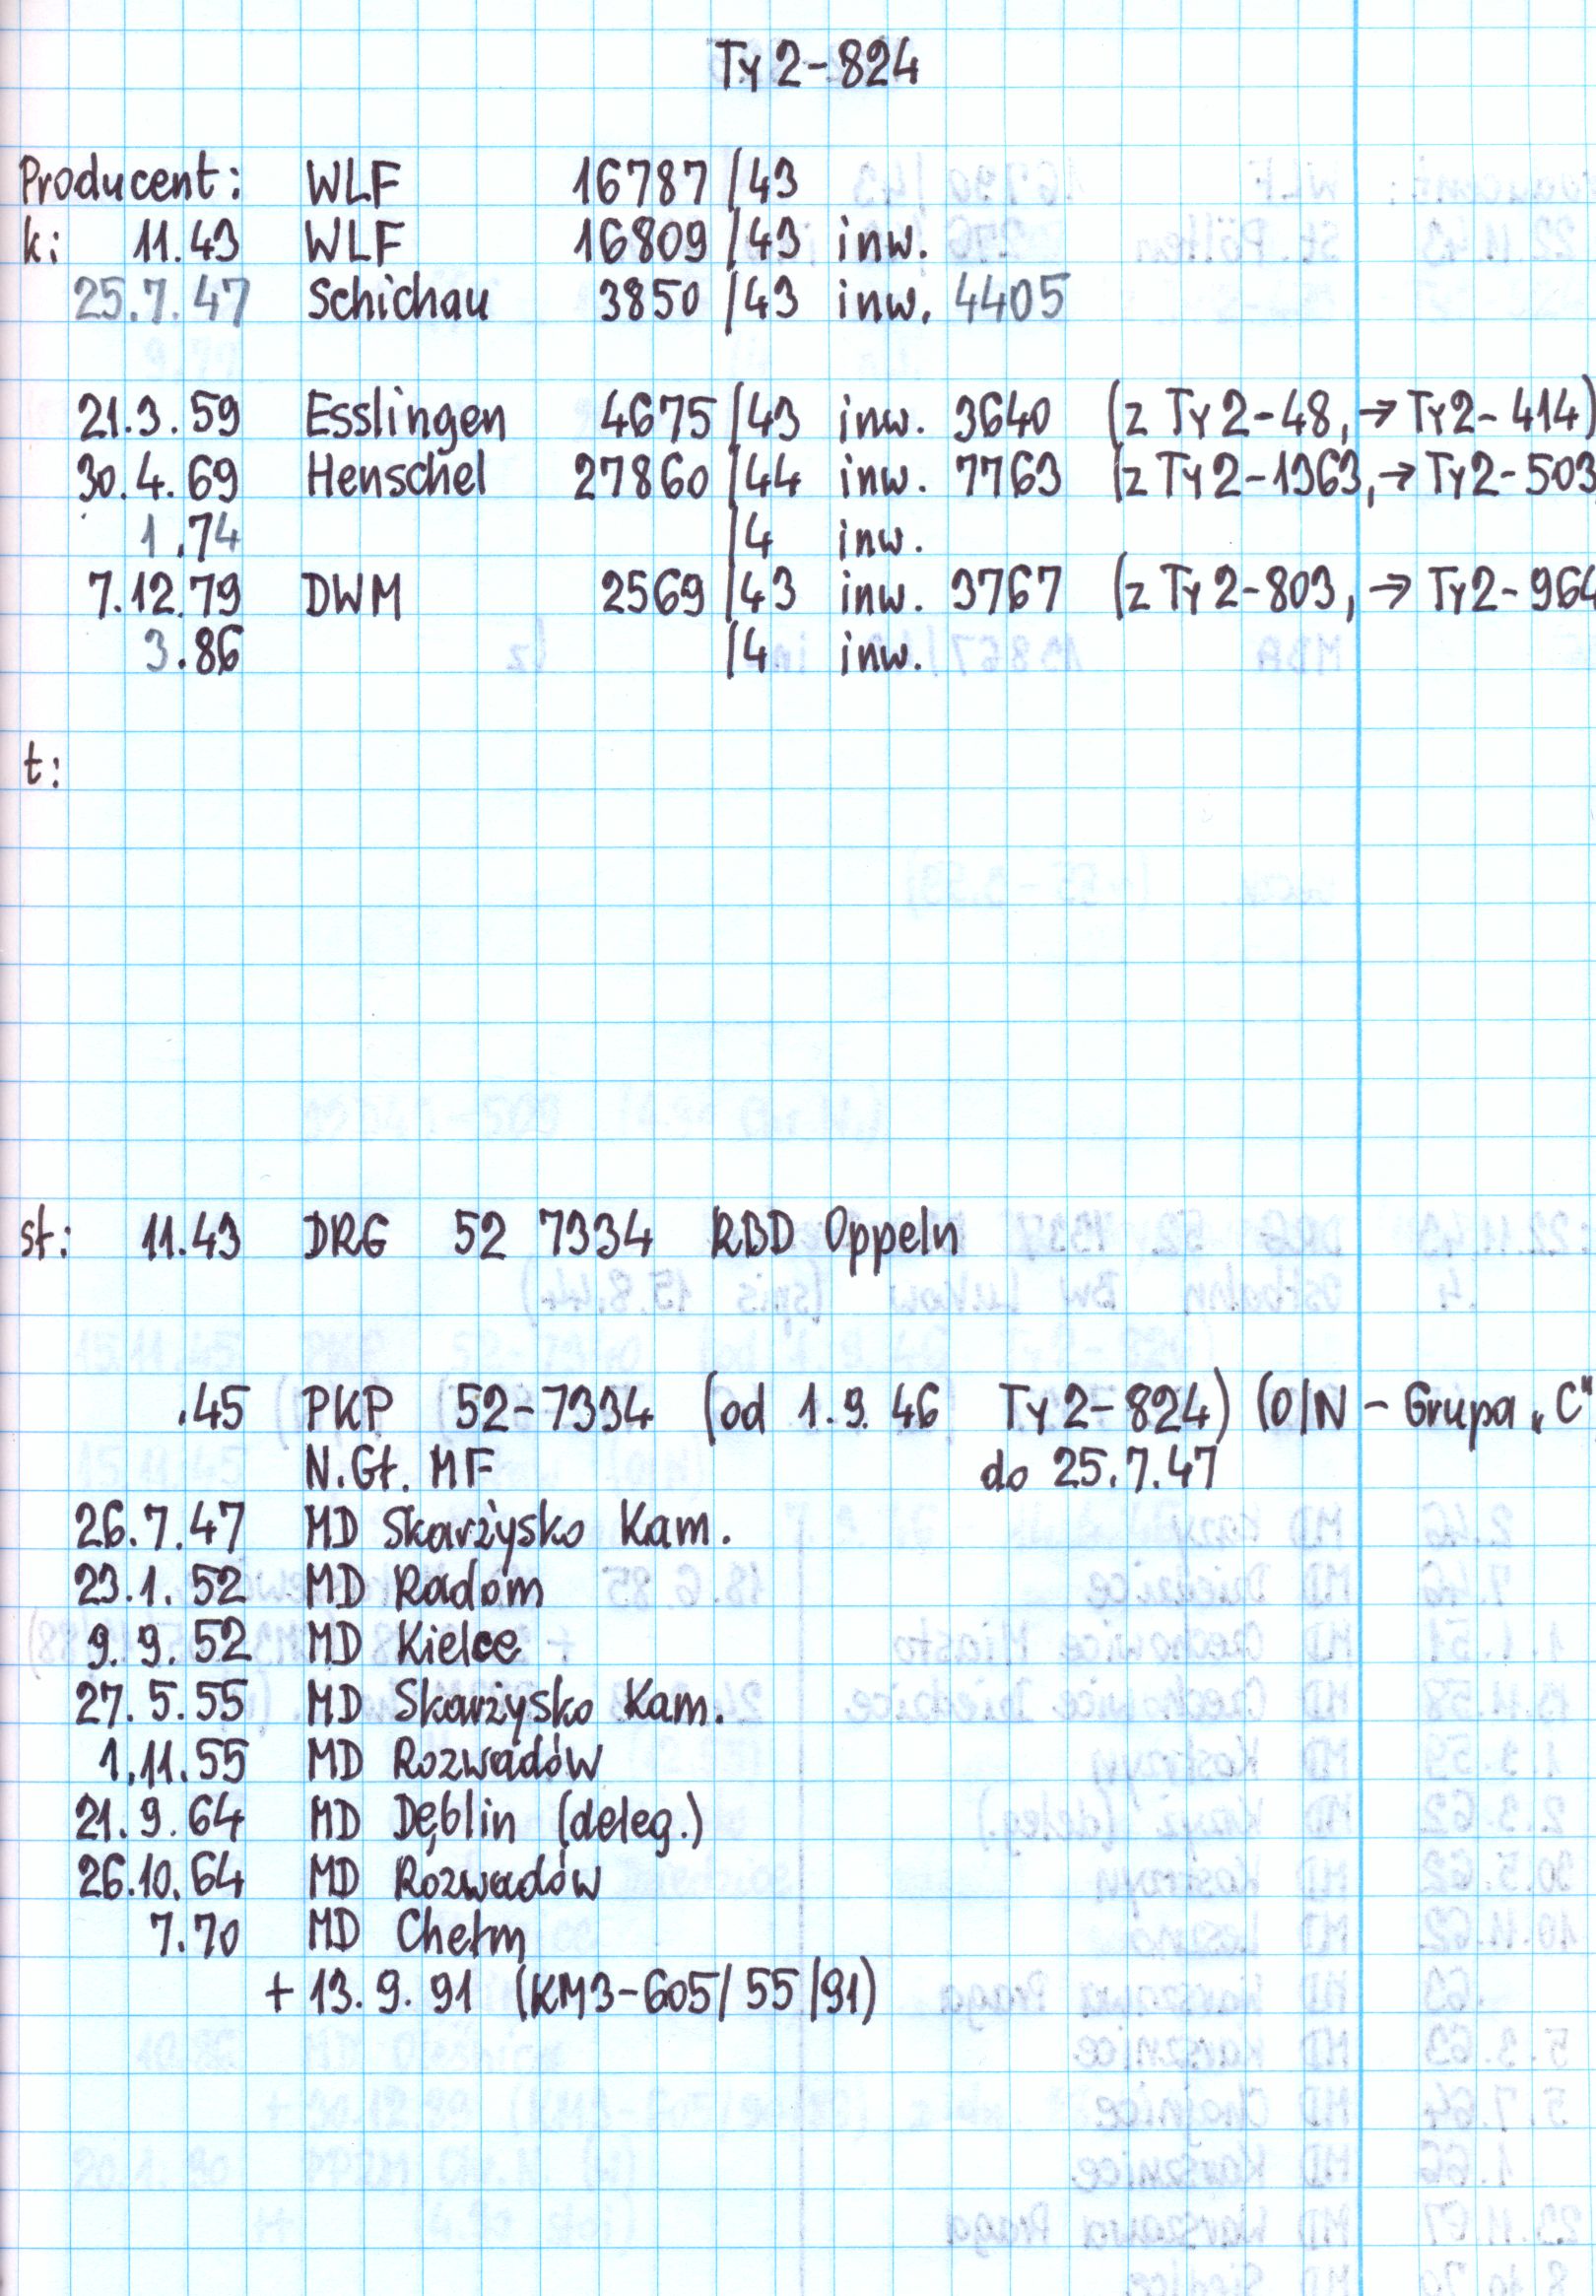 Ty2-824
Producent: WLF 16787/43
k: 11.43 WLF 16809/43 inw.
25.7.47 Schichau 3850/43 inw. 4405
21.3.59 Esslingen 4675/43 inw. 3640 (z Ty2-48, → Ty2-414)
30.4.69 Henschel 27860/44 inw. 7763 (z Ty2-1363, → Ty2-503
1.74 /4 inw.
7.12.79 DWM 2569/43 inw. 3767 (z Ty2-803, → Ty2-964
3.86 /4 inw.
t:
st: 11.43 DRG 52 7334 RBD Oppeln
.45 PKP 52-7334 (od 1.9.46 Ty2-824) (O/N - Grupa „C"
N.Gt. MF do 25.7.47
26.7.47 MD Skarżysko Kam.
23.1.52 MD Radom
9.9.52 MD Kielce
27.5.55 MD Skarżysko Kam.
1.11.55 MD Rozwadów
21.9.64 MD Dęblin (deleg.)
26.10.64 MD Rozwadów
7.70 MD Chełm
+ 13.9.91 (KM3-605/55/91)